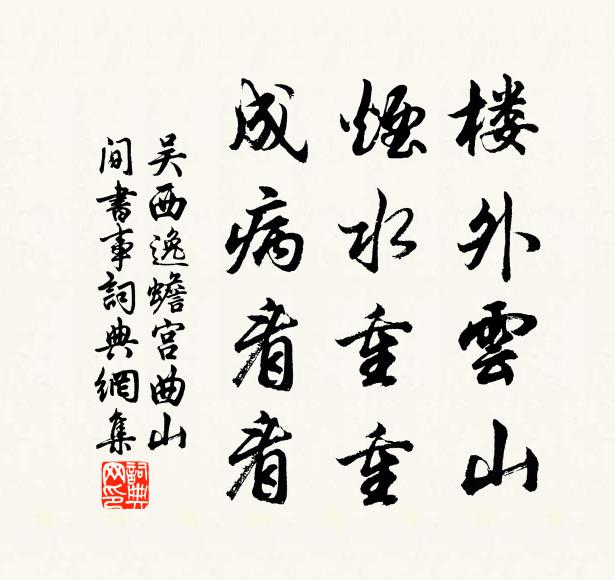 楼外雲山
煙水重重
成病看看
吴西逸蟾宫曲山
间書事詞典網集
詞典
网印